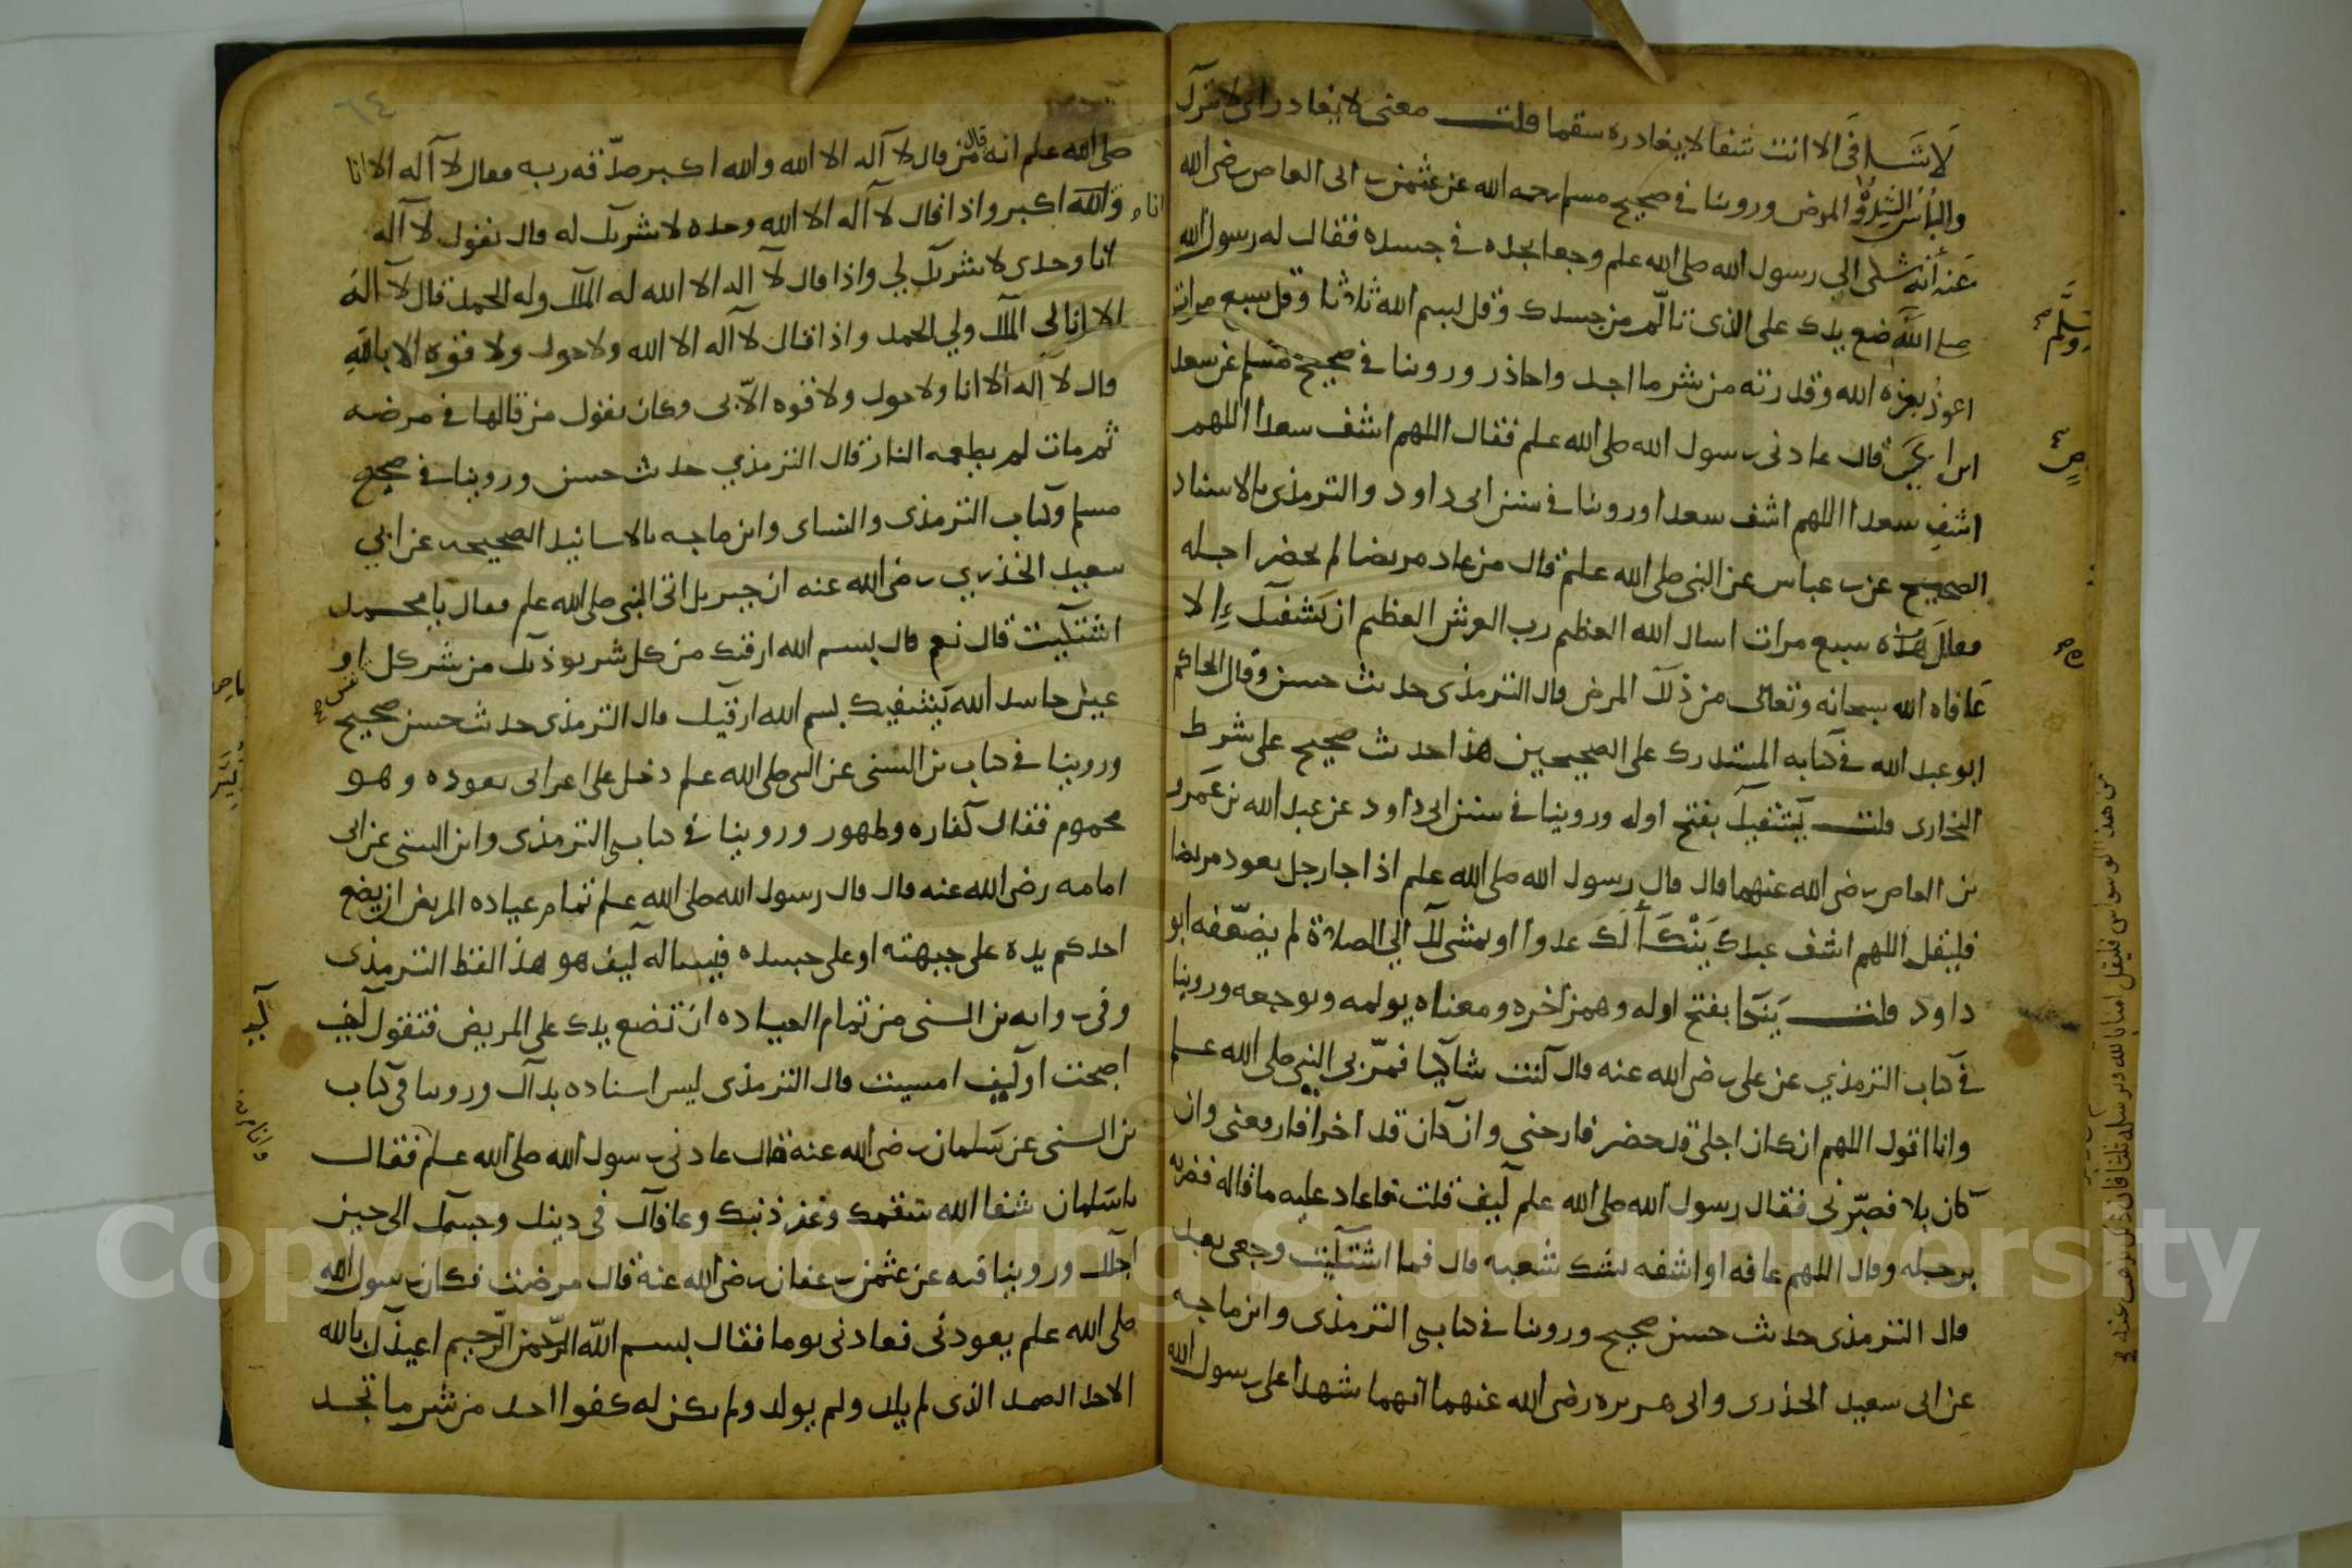 لا شافي الا انت شفا لا يغادره سقما قلت معنى لا يغادر اى لا يترك
والبأس الشدة والمرض وروينا في صحيح مسلم رحمه الله عن عثمن بن ابى العاص رضي الله
عنه أنه شكى الى رسول الله صلى الله علم وجعا يجده في جسده فقال له رسول الله
صلى الله ضع يدك على الذى تألّم من جسدك وقل بسم الله ثلاثا وقل سبع مرات
اعوذ بعزة الله وقدرته من شر ما اجد واحاذر وروينا في صحيح مسلم عن سعد
قال عادنى رسول الله صلى الله علم فقال اللهم اشف سعدا اللهم
اشف سعدا اللهم اشف سعدا وروينا في سنن ابى داود والترمذى بالاسناد
الصحيح عن بن عباس عن النبى صلى الله علم قال من عاد مريضا لم يحضر اجله
فقال عنده سبع مرات اسال الله العظيم رب العرش العظيم ان يَشفيك الا
عافاه الله سبحانه وتعالى من ذلك المرض قال الترمذى حديث حسن وقال الحاكم
ابو عبد الله في كتابه المستدرك على الصحيحين هذا حديث صحيح على شرط
البخارى قلت يَشفيك بفتح اوله وروينا في سنن ابى داود عن عبد الله بن عمرو
بن العاص رضي الله عنهما قال قال رسول الله صلى الله علم اذا جا رجل يعود مريضا
فليقل اللهم اشف عبدك يَنْكَأ لَكَ عدوا او يمشى لك الى الصلاة لم يضعّفه ابو
داود قلت يَنكا بفتح اوله وهمز اخره ومعناه يولمه ويوجعه وروينا
في كتاب الترمذي عن على رضي الله عنه قال كنت شاكيا فمرّ بى النبى صلى الله علم
وانا اقول اللهم ان كان اجلى قد حضر فارحنى وان كان قد اخرا فارفعنى وان
كان بلا فصبّرنى فقال رسول الله صلى الله علم كيف قلت فاعاد عليه ما قاله فضربه
برجله وقال اللهم عافه او اشفه شك شعبه قال فما اشتكيت وجعى بعد
قال الترمذى حديث حسن صحيح وروينا في كتابى الترمذى وابن ماجه
عن ابى سعيد الخدرى وابى هريره رضي الله عنهما انهما شهدا على رسول الله
وسلم صح
٦٤
صلى الله علم انه قال من قال لا اله الا الله والله اكبر صدّقه ربه فقال لا اله الا انا
وانا اكبر واذا قال لا اله الا الله وحده لا شريك له قال يقول لا اله
انا وحدى لا شريك لي واذا قال لا اله الا الله له الملك وله الحمد قال لا اله
الا انا لى الملك ولي الحمد واذا قال لا اله الا الله ولا حول ولا قوه الا بالله
قال لا اله الا انا ولا حول ولا قوه الّا بى وكان يقول من قالها في مرضه
ثم مات لم يطعمه النار قال الترمذي حديث حسن وروينا في صحيح
مسلم وكتاب الترمذى والنساى وابن ماجه بالاسانيد الصحيحه عن ابي
سعيد الخذري رضي الله عنه ان جبريل اتى النبى صلى الله علم فقال يا محمد
اشتكيت قال نعم قال بسم الله ارقيك من كل شر يوذيك من شر كل نفس او
عين حاسد الله يَشفيك بسم الله ارقيك قال الترمذى حديث حسن صحيح
وروينا في كتاب بن السنى عن النبى صلى الله علم دخل على اعرابى يعوده وهو
محموم فقال كفاره وطهور وروينا في كتابى الترمذى وابن السنى عن ابى
امامه رضي الله عنه قال قال رسول الله صلى الله علم تمام عياده المريض ان يضع
احدكم يده على جبهته او على جسده فيساله كيف هو هذا لفظ الترمذى
وفى روايه بن السنى من تمام العياده ان تضع يدك على المريض فتقول كيف
اصبحت او كيف امسيت قال الترمذى ليس اسناده بذاك وروينا في كتاب
بن السنى عن سلمان رضي الله عنه قال عادنى رسول الله صلى الله علم فقال
يا سلمان شفا الله سقمك وغفر ذنبك وعافاك في دينك وجسمك الى حين
اجلك وروينا فيه عن عثمن بن عفان رضي الله عنه قال مرضت فكان رسول الله
صلى الله علم يعودنى فعادنى يوما فقال بسم الله الرّحمن الرّحيم اعيذك بالله
الاحد الصمد الذى لم يلد ولم يولد ولم يكن له كفوا احد من شر ما تجد
Copyright © King Saud University